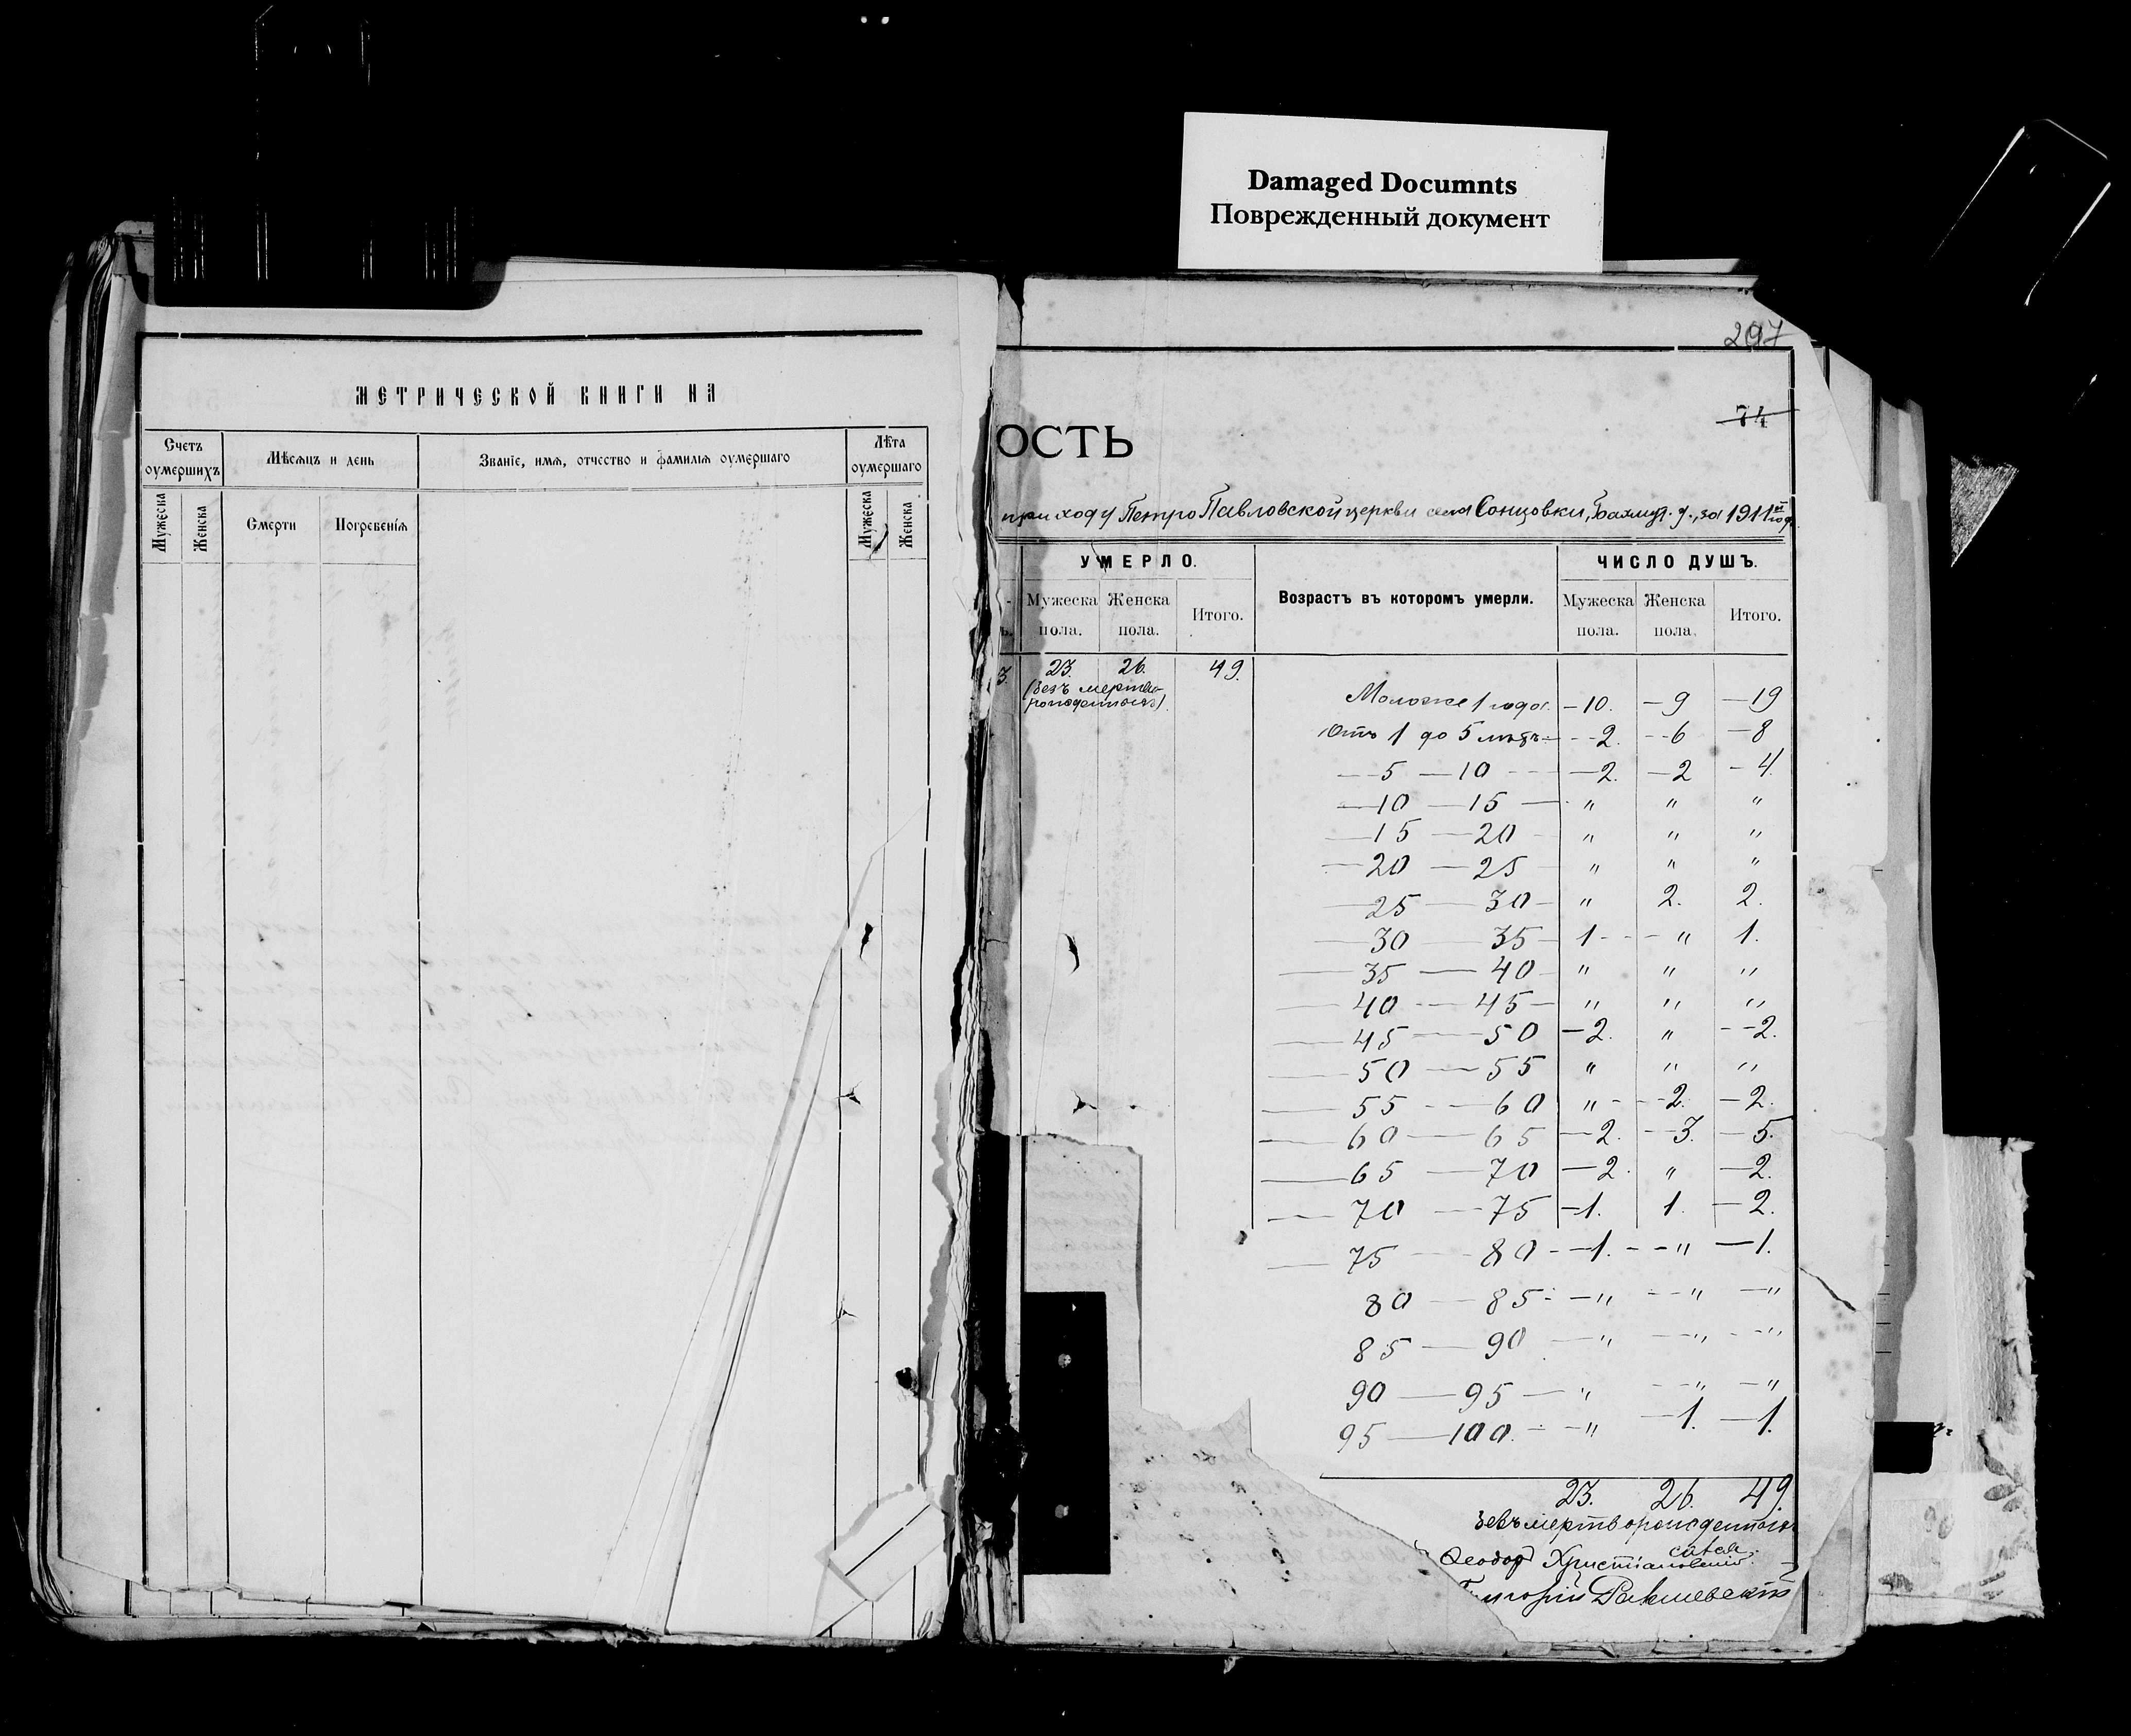 Damaged Documnts
Поврежденный документ
МЕТРИЧЕСКОЙ КНИГИ НА
Счетъ оумершихъ
Мѣсяцъ и день
Званіе, имя, отчество и фамилія оумершаго
Лѣта оумершаго
Мужеска
Женска
Смерти
Погребенія
Мужеска
Женска
297
74
ОСТЬ
приходу Петро Павловской церкви села Сонцовки, Бахмут. у., за 1911й год
УМЕРЛО.
Возрастъ въ которомъ умерли.
ЧИСЛО ДУШЪ.
Мужеска пола.
Женска пола.
Итого.
Мужеска пола.
Женска пола.
Итого.
3. 23. 26. 49.
(безъ мертво-
рожденныхъ).
Моложе 1 года. — 10. — 9 — 19
Отъ 1 до 5 лѣтъ — 2. — 6 — 8
— 5 — 10 — 2. — 2 — 4.
— 10 — 15 — " " "
— 15 — 20 — " " "
— 20 — 25 — " " "
— 25 — 30 — " 2. 2.
— 30 — 35 — 1 - - " 1.
— 35 — 40 — " " "
— 40 — 45 — " " "
— 45 — 50 — 2. " — 2.
— 50 — 55 " " "
— 55 — 60 " - — 2. — 2.
— 60 — 65 — 2. — 3. — 5.
— 65 — 70 — 2. " — 2.
— 70 — 75 — 1. 1. — 2.
— 75 — 80 — 1. — " — 1.
80 — 85 — " — " — "
85 — 90 — " — " — "
90 — 95 — " — " — "
95 — 100. — " — 1. — 1.
23. 26. 49.
безъ мертворожденныхъ
Ѳеодоръ Христіановскій